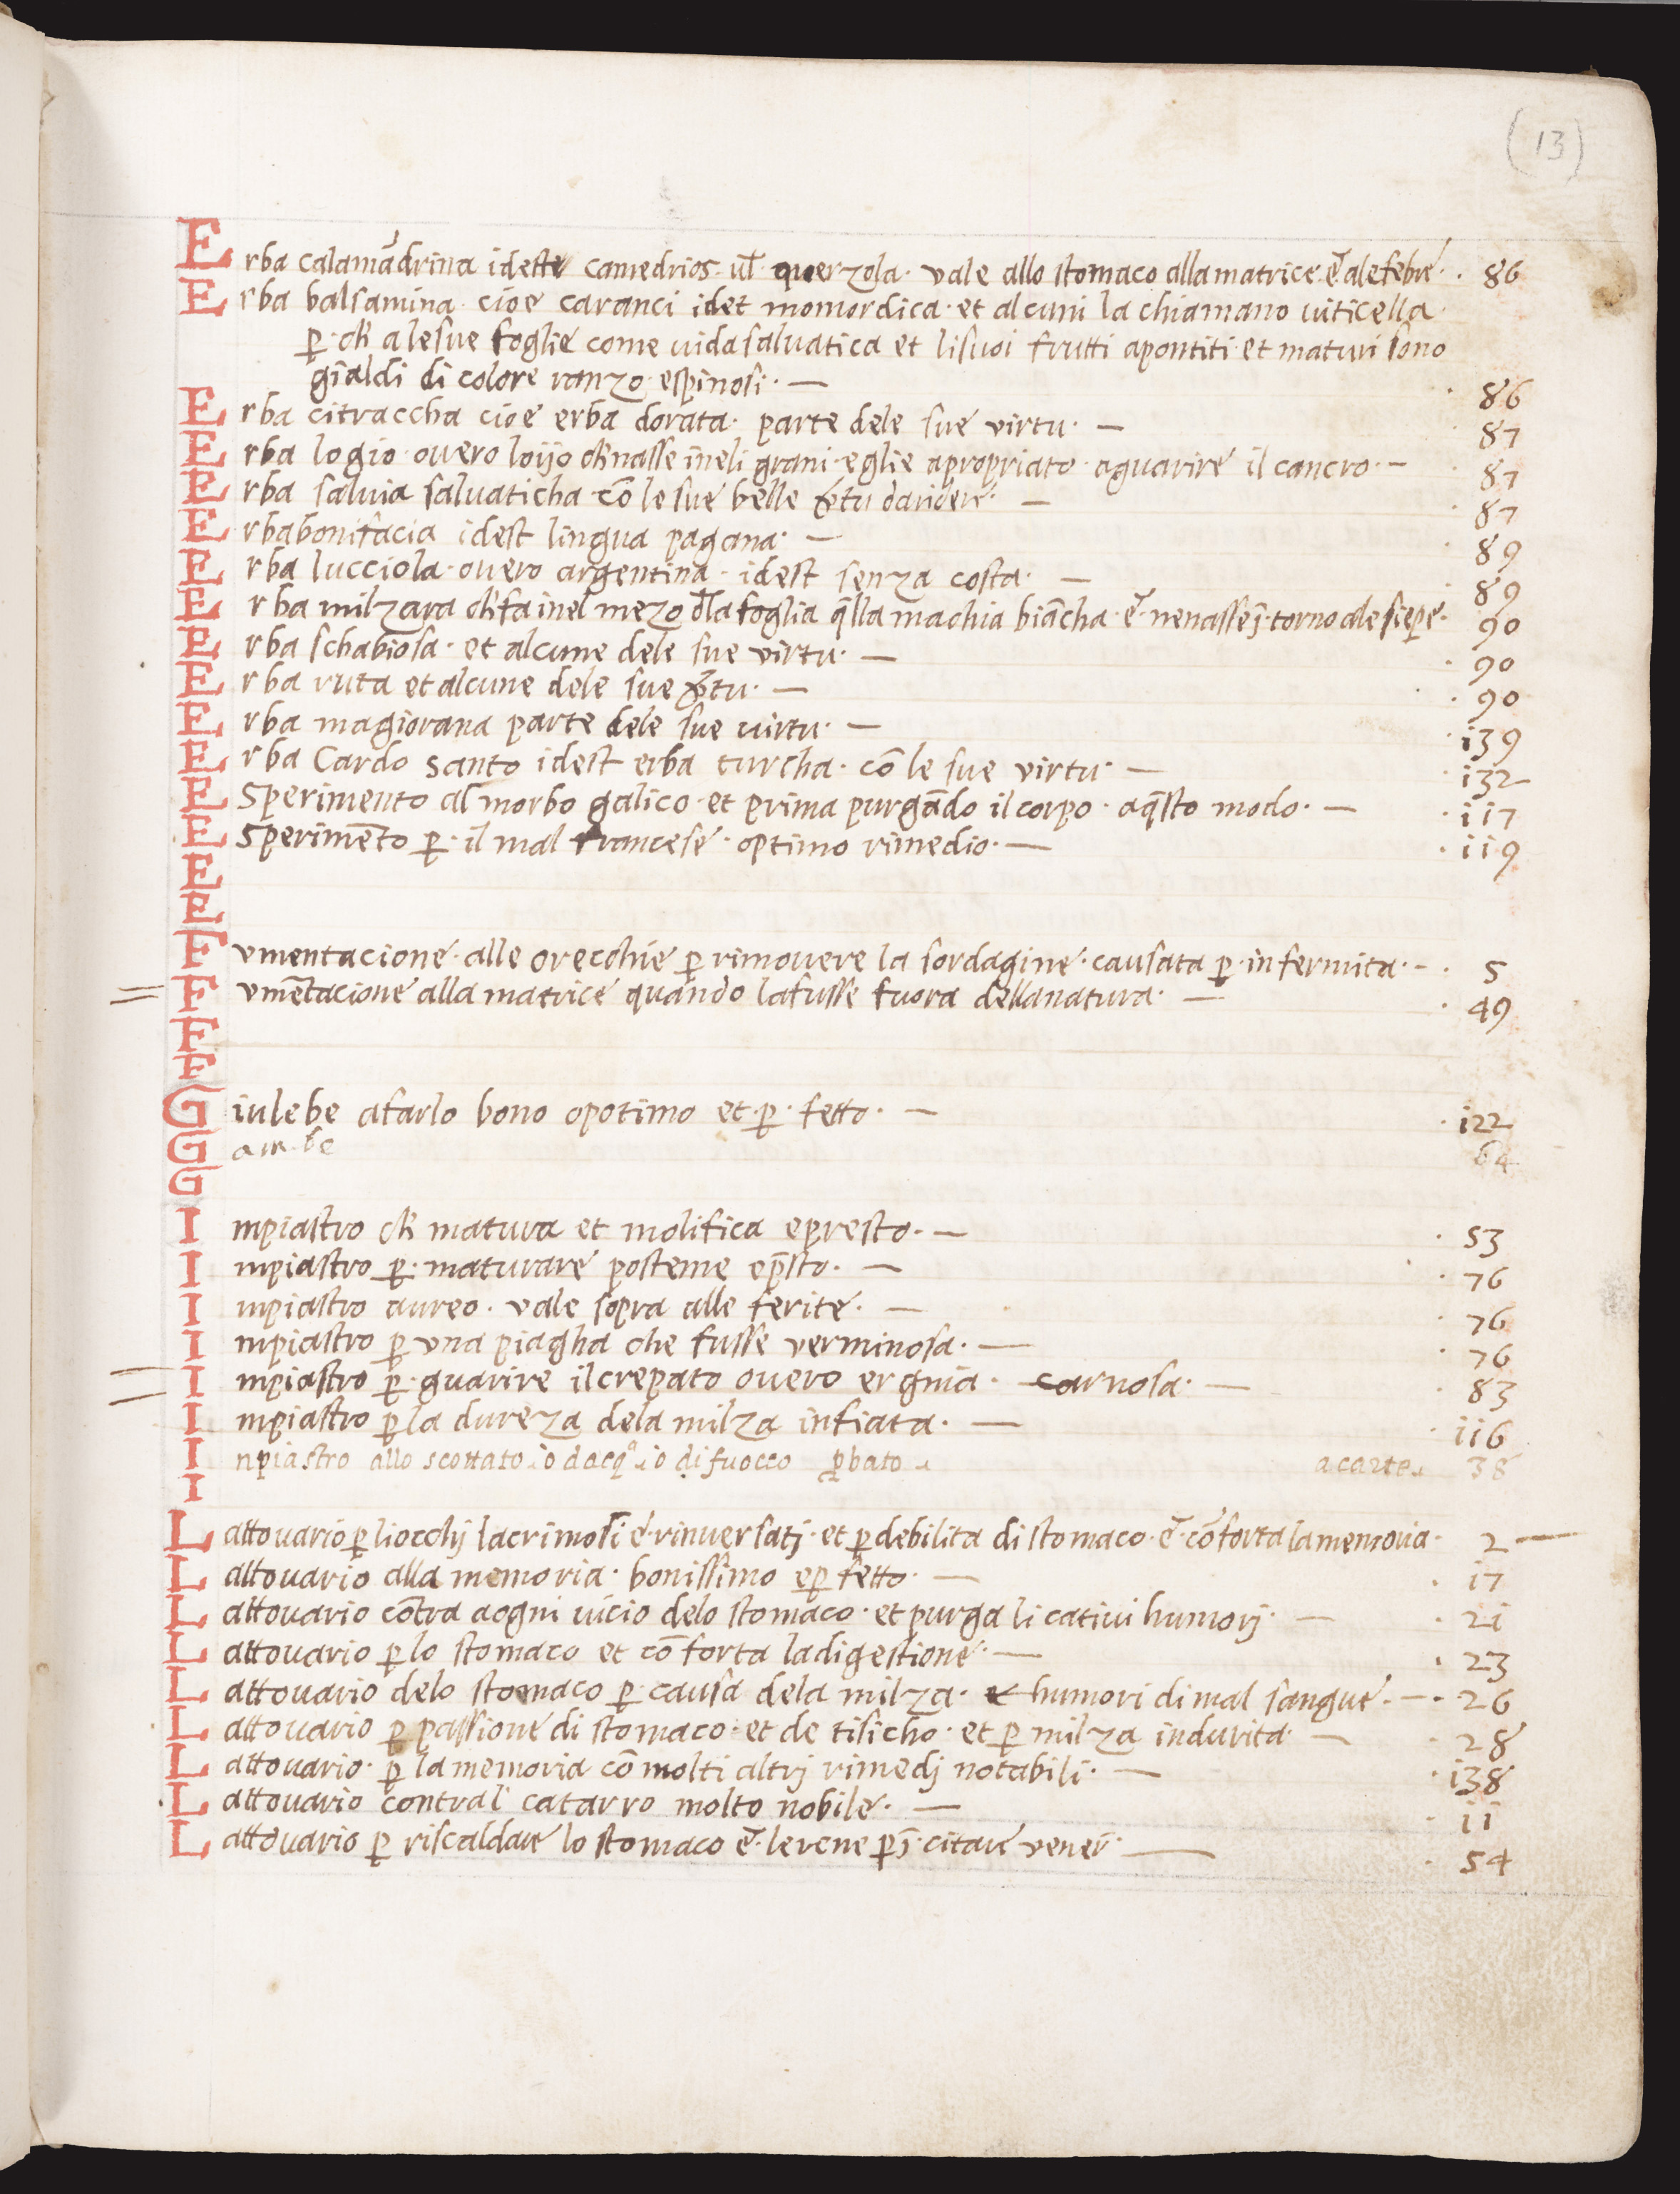 (13)
Erba calamādrina ideste camedrios. ul̃ querzola. vale allo stomaco alla matrice. et̃ ale febre. . 86
Erba balsamina. cioe caranci idet momordica. et alcuni la chiamano viticella.
ꝑ. ch̃ a le sue foglie come vida salvatica et li suoi frutti apontiti. et maturi sono
gialdi di colore ranzo. espinosi. — . 86
Erba citraccha cioe erba dorata. parte dele sue virtu. — . 87
Erba logio. overo loijo ch̃ nasse ineli grani. eglie apropriato. aguarire il cancro. — . 87
Erba salvia salvaticha cō le sue belle v̄tu daridere. — . 87
Erba bonifacia idest lingua pagana. — . 89
Erba lucciola. overo argentina. idest senza costa. — . 89
Erba milzara ch̃ fa inel mezo dl̃a foglia q̄lla machia biācha. et̃. ne nasse ī. torno ale siepe. 90
Erba schabiosa. et alcune dele sue virtu. — . 90
Erba ruta et alcune dele sue v̄tu. — . 90
Erba magiorana parte dele sue virtu. — . i39
Erba Cardo santo idest erba turcha. cō le sue virtu. — . i32
E Sperimento al morbo galico. et prima purgādo il corpo. a q̄sto modo. — . ii7
E Sperimēto ꝑ. il mal francese. optimo rimedio. — . ii9
E
E
Fumentacione. alle orecchie ꝑ rimovere la sordagine. causata ꝑ. infermita. — . 5
Fumētacione alla matrice quando la fusse fuora della natura. — . 49
F
F
Giulebe afarlo bono opotimo et. ꝑ. fetto. — . i22
G 64
G
Impiastro ch̃ matura et molifica epresto. — . 53
Impiastro ꝑ. maturare posteme ep̄sto. — . 76
Impiastro aureo. vale sopra alle ferite. — . 76
Impiastro ꝑ una piagha che fusse verminosa. — . 76
Impiastro ꝑ. guarire il crepato overo ergnia. carnosa. — . 83
Impiastro ꝑ la dureza dela milza infiata. — . ii6
Inpiastro allo scottato. o dacq̃. o di fuocco ꝓbato. a carte. 38
I
Lattovario ꝑ li occhij lacrimosi e. rinversatj. et ꝑ debilita di stomaco. et̃. cōforta la memoria. 2 —
Lattovario alla memoria. bonissimo eꝑ fetto. — . i7
Lattovario cōtra a ogni vicio delo stomaco. et purga li cativi humorj. — . 2i
Lattovario ꝑ lo stomaco et cōforta la digestione. — . 23
Lattovario delo stomaco ꝑ. causa dela milza. et humori di mal sangue. — . 26
Lattovario ꝑ passione di stomaco. et de tisicho. et ꝑ milza indurita. — . 28
Lattovario. ꝑ la memoria cō molti altrj rimedj notabili. — . i38
Lattovario contral catarro molto nobile. — . ii
Lattovario ꝑ riscaldare lo stomaco et̃. le rene ꝑ ī. citare — . 54